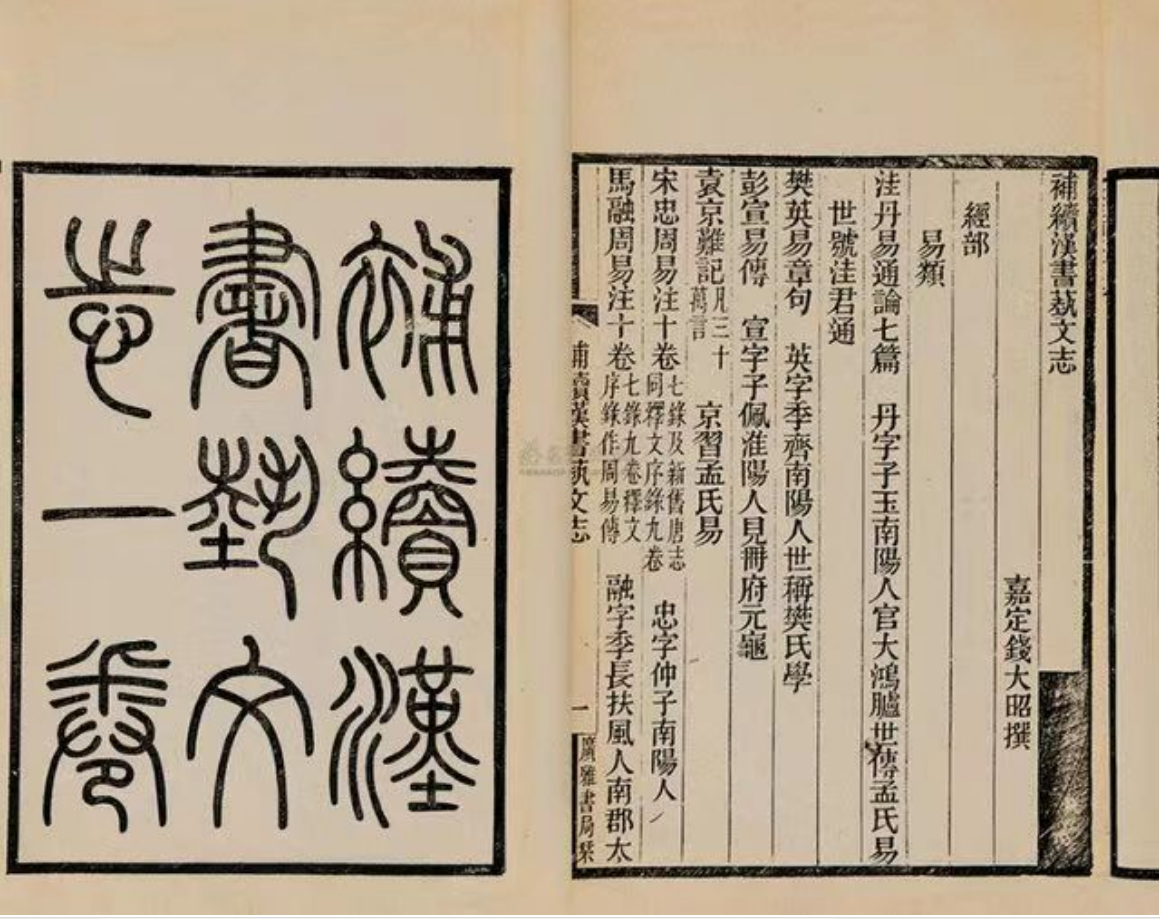 補續漢書藝文志
嘉定錢大昭撰
經部
易類
洼丹易通論七篇　丹字子玉南陽人官大鴻臚世傳孟氏易
世號洼君通
樊英易章句　英字季齊南陽人世稱樊氏學
彭宣易傳　宣字子佩淮陽人見冊府元龜
袁京難記凡三十萬言　京習孟氏易
宋忠周易注十卷七錄及新舊唐志同釋文序錄九卷　忠字仲子南陽人
馬融周易注十卷七錄九卷釋文序錄作周易傳　融字季長扶風人南郡太
補續漢書藝文志　一　廣雅書局栞
補續漢
書藝文
志一卷